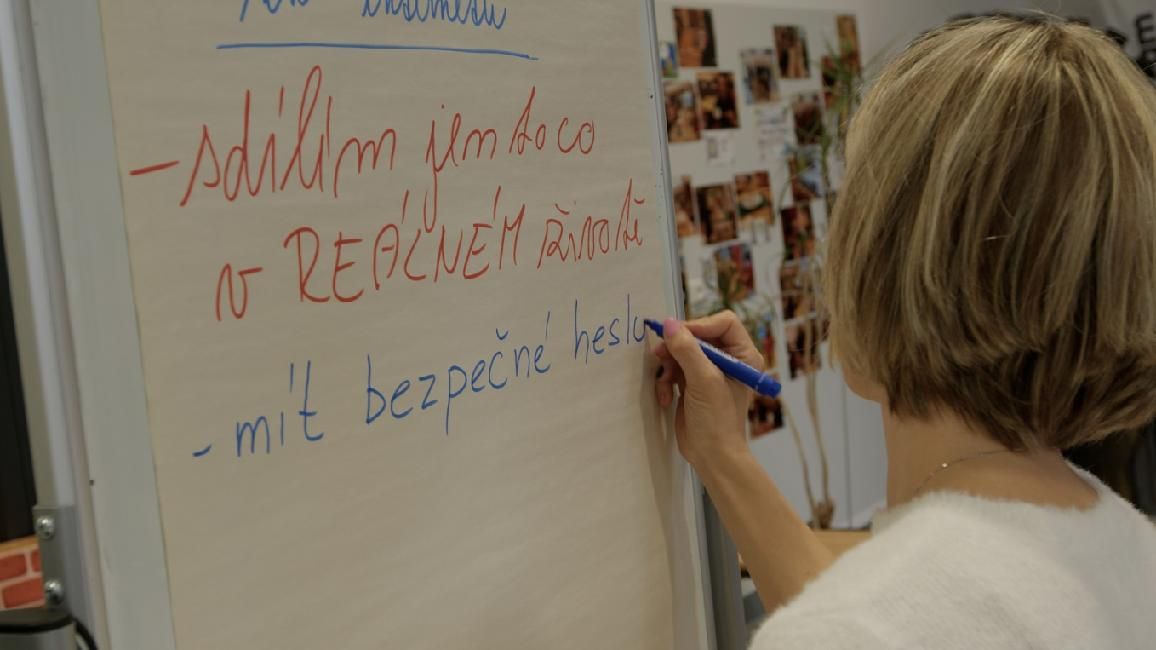 - sdílím jen to co
v REÁLNÉM životě
- mít bezpečné heslo